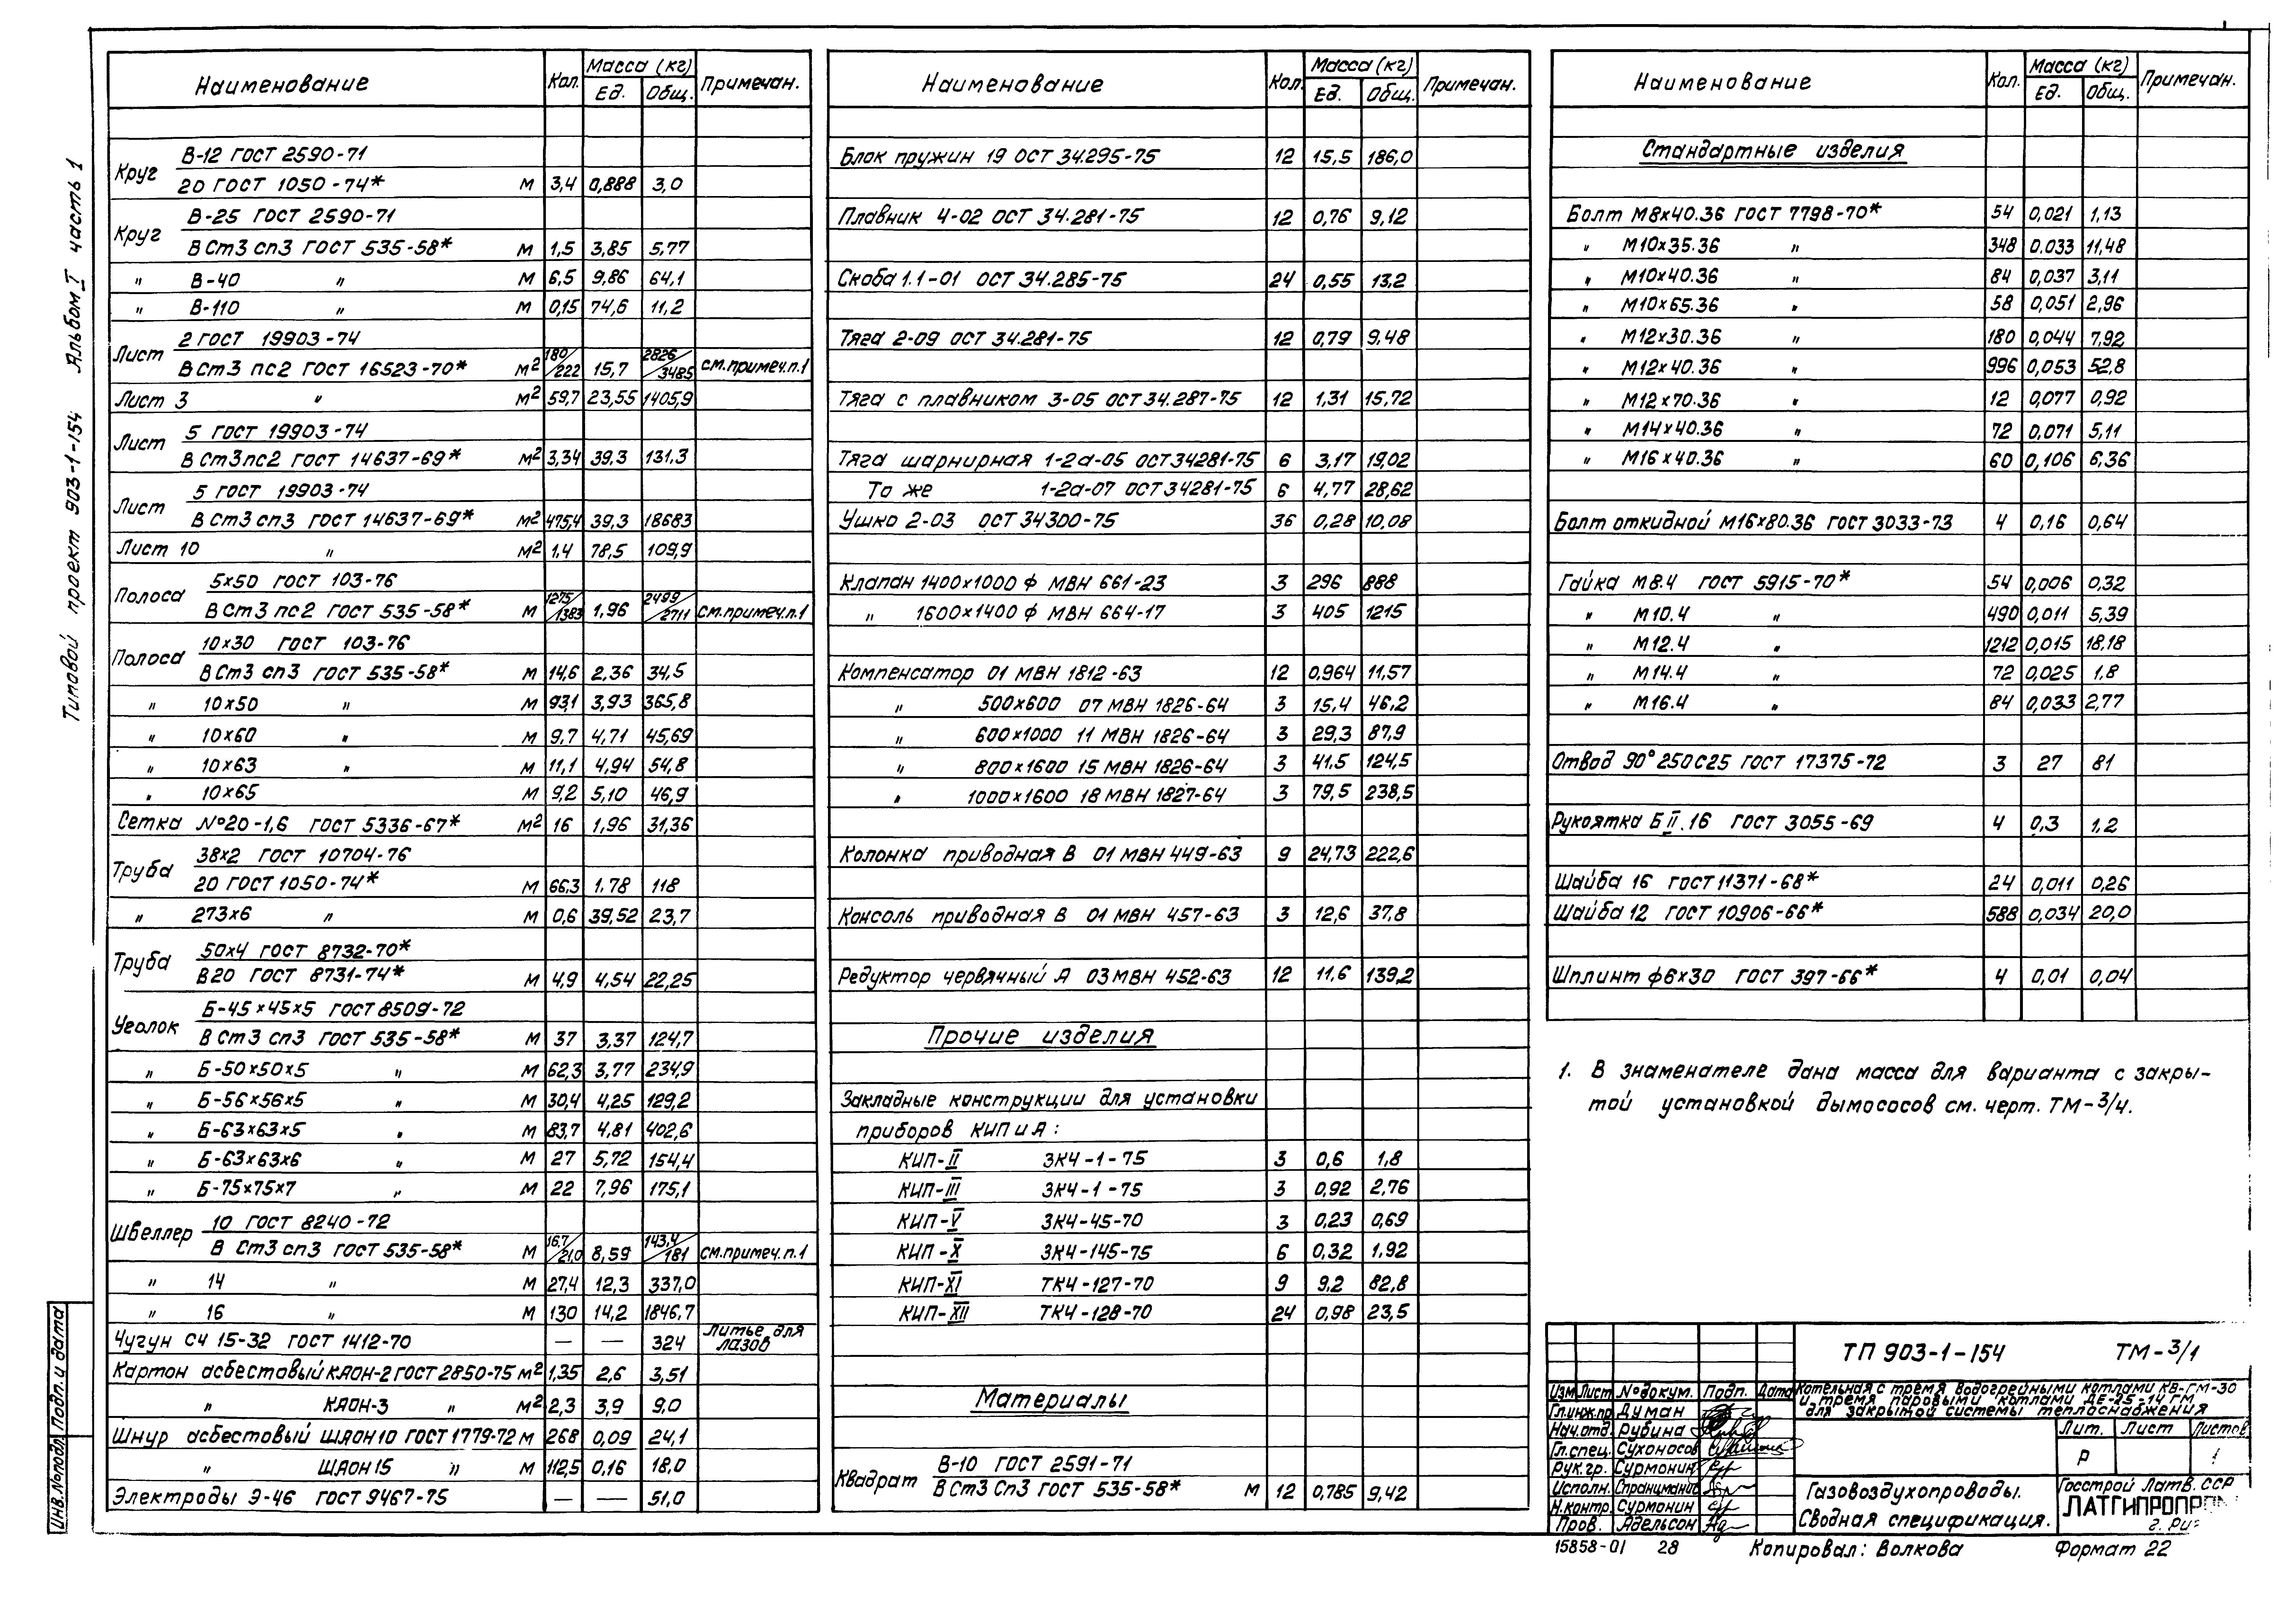 Типовой проект 903-1-154 Альбом I часть 1
Наименование Кол. Масса (кг) Примечан.
Ед. Общ.
Круг В-12 ГОСТ 2590-71
20 ГОСТ 1050-74* м 3,4 0,888 3,0
Круг В-25 ГОСТ 2590-71
В Ст3 сп3 ГОСТ 535-58* м 1,5 3,85 5,77
" В-40 " м 6,5 9,86 64,1
" В-110 " м 0,15 74,6 11,2
Лист 2 ГОСТ 19903-74
В Ст3 пс2 ГОСТ 16523-70* м² 180/222 15,7 2826/3485 см.примеч.п.1
Лист 3 " м² 59,7 23,55 1405,9
Лист 5 ГОСТ 19903-74
В Ст3пс2 ГОСТ 14637-69* м² 3,34 39,3 131,3
Лист 5 ГОСТ 19903-74
В Ст3 сп3 ГОСТ 14637-69* м² 475,4 39,3 18683
Лист 10 " м² 1,4 78,5 109,9
Полоса 5х50 ГОСТ 103-76
В Ст3 пс2 ГОСТ 535-58* м 1275/1383 1,96 2499/2711 см.примеч.п.1
Полоса 10х30 ГОСТ 103-76
В Ст3 сп3 ГОСТ 535-58* м 14,6 2,36 34,5
" 10х50 " м 93,1 3,93 365,8
" 10х60 " м 9,7 4,71 45,69
" 10х63 " м 11,1 4,94 54,8
" 10х65 м 9,2 5,10 46,9
Сетка №20-1,6 ГОСТ 5336-67* м² 16 1,96 31,36
Труба 38х2 ГОСТ 10704-76
20 ГОСТ 1050-74* м 66,3 1,78 118
" 273х6 " м 0,6 39,52 23,7
Труба 50х4 ГОСТ 8732-70*
В20 ГОСТ 8731-74* м 4,9 4,54 22,25
Уголок Б-45х45х5 ГОСТ 8509-72
В Ст3 сп3 ГОСТ 535-58* м 37 3,37 124,7
" Б-50х50х5 " м 62,3 3,77 234,9
" Б-56х56х5 " м 30,4 4,25 129,2
" Б-63х63х5 " м 83,7 4,81 402,6
" Б-63х63х6 " м 27 5,72 154,4
" Б-75х75х7 " м 22 7,96 175,1
Швеллер 10 ГОСТ 8240-72
В Ст3 сп3 ГОСТ 535-58* м 16,7/21,0 8,59 143,4/181 см.примеч.п.1
" 14 " м 27,4 12,3 337,0
" 16 " м 130 14,2 1846,7
Чугун СЧ 15-32 ГОСТ 1412-70 — — 324 Литье для лазов
Картон асбестовый КАОН-2 ГОСТ 2850-75 м² 1,35 2,6 3,51
" КАОН-3 " м² 2,3 3,9 9,0
Шнур асбестовый ШАОН10 ГОСТ 1779-72 м 268 0,09 24,1
" ШАОН15 " м 112,5 0,16 18,0
Электроды Э-46 ГОСТ 9467-75 — — 51,0
Наименование Кол. Масса (кг) Примечан.
Ед. Общ.
Блок пружин 19 ОСТ 34.295-75 12 15,5 186,0
Плавник 4-02 ОСТ 34.281-75 12 0,76 9,12
Скоба 1.1-01 ОСТ 34.285-75 24 0,55 13,2
Тяга 2-09 ОСТ 34.281-75 12 0,79 9,48
Тяга с плавником 3-05 ОСТ 34.287-75 12 1,31 15,72
Тяга шарнирная 1-2а-05 ОСТ 34281-75 6 3,17 19,02
То же 1-2а-07 ОСТ 34281-75 6 4,77 28,62
Ушко 2-03 ОСТ 34300-75 36 0,28 10,08
Клапан 1400х1000 Ф МВН 661-23 3 296 888
" 1600х1400 Ф МВН 664-17 3 405 1215
Компенсатор 01 МВН 1812-63 12 0,964 11,57
" 500х600 07 МВН 1826-64 3 15,4 46,2
" 600х1000 11 МВН 1826-64 3 29,3 87,9
" 800х1600 15 МВН 1826-64 3 41,5 124,5
" 1000х1600 18 МВН 1827-64 3 79,5 238,5
Колонка приводная В 01 МВН 449-63 9 24,73 222,6
Консоль приводная В 01 МВН 457-63 3 12,6 37,8
Редуктор червячный А 03 МВН 452-63 12 11,6 139,2
Прочие изделия
Закладные конструкции для установки
приборов КИП и А:
КИП-II ЗК4-1-75 3 0,6 1,8
КИП-III ЗК4-1-75 3 0,92 2,76
КИП-V ЗК4-45-70 3 0,23 0,69
КИП-X ЗК4-145-75 6 0,32 1,92
КИП-XI ТК4-127-70 9 9,2 82,8
КИП-XII ТК4-128-70 24 0,98 23,5
Материалы
Квадрат В-10 ГОСТ 2591-71
В Ст3 Сп3 ГОСТ 535-58* м 12 0,785 9,42
Наименование Кол. Масса (кг) Примечан.
Ед. Общ.
Стандартные изделия
Болт М8х40.36 ГОСТ 7798-70* 54 0,021 1,13
" М10х35.36 " 348 0.033 11,48
" М10х40.36 " 84 0,037 3,11
" М10х65.36 " 58 0,051 2,96
" М12х30.36 " 180 0,044 7,92
" М12х40.36 " 996 0,053 52,8
" М12х70.36 " 12 0,077 0,92
" М14х40.36 " 72 0,071 5,11
" М16х40.36 " 60 0,106 6,36
Болт откидной М16х80.36 ГОСТ 3033-73 4 0,16 0,64
Гайка М8.4 ГОСТ 5915-70* 54 0,006 0,32
" М10.4 " 490 0,011 5,39
" М12.4 " 1212 0,015 18,18
" М14.4 " 72 0,025 1,8
" М16.4 " 84 0,033 2,77
Отвод 90° 250С25 ГОСТ 17375-72 3 27 81
Рукоятка Б II.16 ГОСТ 3055-69 4 0,3 1,2
Шайба 16 ГОСТ 11371-68* 24 0,011 0,26
Шайба 12 ГОСТ 10906-66* 588 0,034 20,0
Шплинт ф6х30 ГОСТ 397-66* 4 0,01 0,04
1. В знаменателе дана масса для варианта с закры-
той установкой дымососов см. черт. ТМ-3/4.
ТП 903-1-154 ТМ-3/1
Изм Лист №докум. Подп. Дата
Котельная с тремя водогрейными котлами КВ-ГМ-30
и тремя паровыми котлами ДЕ-25-14 ГМ
для закрытой системы теплоснабжения
Гл.инж.пр. Думан
Нач.отд. Рубина
Гл.спец. Сухоносов
Рук.гр. Сурмонин
Исполн.
Н.контр. Сурмонин
Пров. Адельсон
Лит. Лист Листов
Р
Газовоздухопроводы.
Сводная спецификация.
Госстрой Латв. ССР
ЛАТГИПРОПРОМ
Инв.№подл. Подп. и дата
15858-01 28 Копировал: Волкова Формат 22